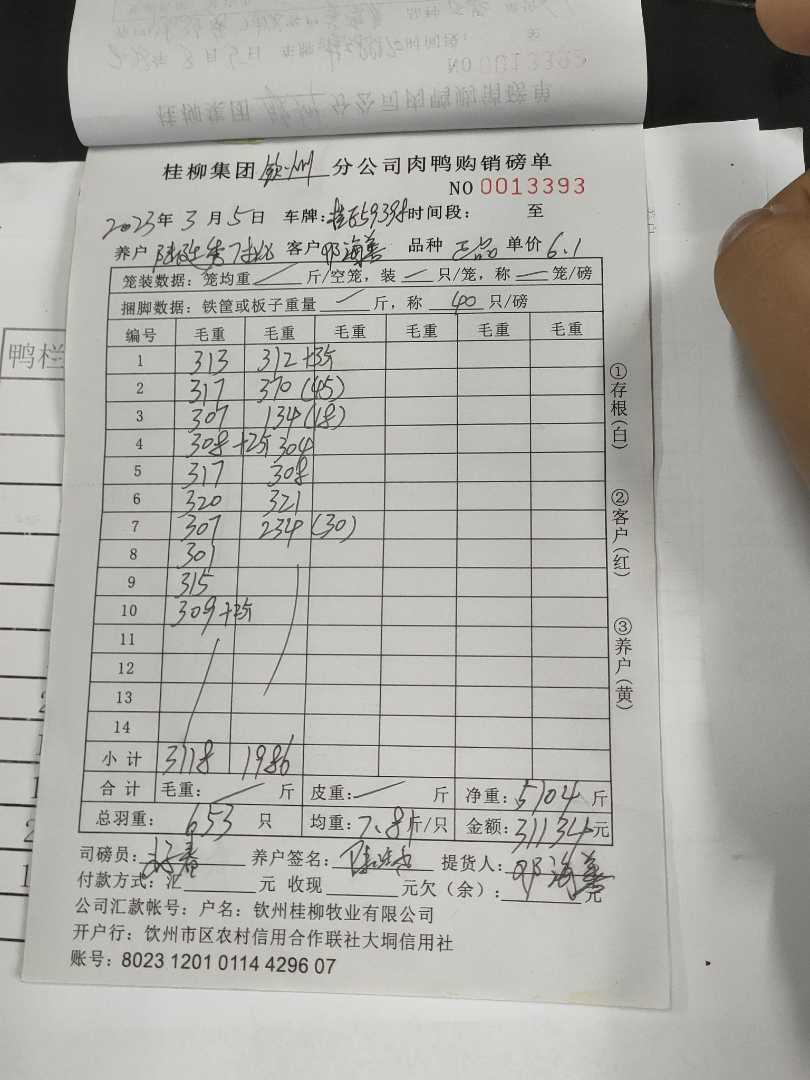 NO 0013392
桂柳集团 钦州 分公司肉鸭购销磅单
NO 0013393
2023年 3 月 5 日 车牌: 时间段: 至
养户 客户 邓海善 品种 正品 单价 6.1
笼装数据: 笼均重 斤/空笼, 装 只/笼, 称 笼/磅
捆脚数据: 铁筐或板子重量 斤, 称 40 只/磅
编号 毛重 毛重 毛重 毛重 毛重 毛重
1 313 312+3斤
2 317 370(45)
3 307 134(18)
4 308+2斤 304
5 317 308
6 320 321
7 307 234 (30)
8 301
9 315
10 309+2斤
11
12
13
14
小计 3118 1986
合计 毛重: 斤 皮重: 斤 净重: 5104 斤
总羽重: 653 只 均重: 7.8斤/只 金额: 31134元
司磅员: 养户签名: 提货人: 邓海善
付款方式: 汇 元 收现 元欠(余): 元
公司汇款帐号: 户名: 钦州桂柳牧业有限公司
开户行: 饮州市区农村信用合作联社大垌信用社
账号: 8023 1201 0114 4296 07
①存根(白)
②客户(红)
③养户(黄)
鸭栏